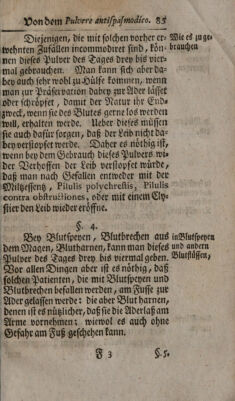 Von dem Pulvere antispasmodico. 85
Diejenigen, die mit solchen vorher er-
wehnten Zufällen incommodiret sind, kön-
nen dieses Pulver des Tages drey bis vier-
mal gebrauchen. Man kann sich aber da-
bey auch sehr wohl zu Hülfe kommen, wenn
man zur Präservation dabey zur Ader lässet
oder schröpfet, damit der Natur ihr End-
zweck, wenn sie des Blutes gerne los werden
will, erhalten werde. Ueber dieses müssen
sie auch dafür sorgen, daß der Leib nicht da-
bey verstopfet werde. Daher es nöthig ist,
wenn bey dem Gebrauch dieses Pulvers wi-
der Verhoffen der Leib verstopfet würde,
daß man nach Gefallen entweder mit der
Miltzessentz, Pilulis polychrestis, Pilulis
contra obstructiones, oder mit einem Cly-
stier den Leib wieder eröffne.
Wie es zu ge-
brauchen
§. 4.
Bey Blutspeyen, Blutbrechen aus
dem Magen, Blutharnen, kann man dieses
Pulver des Tages drey bis viermal geben.
Vor allen Dingen aber ist es nöthig, daß
solchen Patienten, die mit Blutspeyen und
Blutbrechen befallen werden, am Fusse zur
Ader gelassen werde: die aber Blut harnen,
denen ist es nützlicher, daß sie die Aderlaß am
Arme vornehmen; wiewol es auch ohne
Gefahr am Fuß geschehen kann.
in Blutspeyen
und andern
Blutflüssen,
F 3 §. 5.